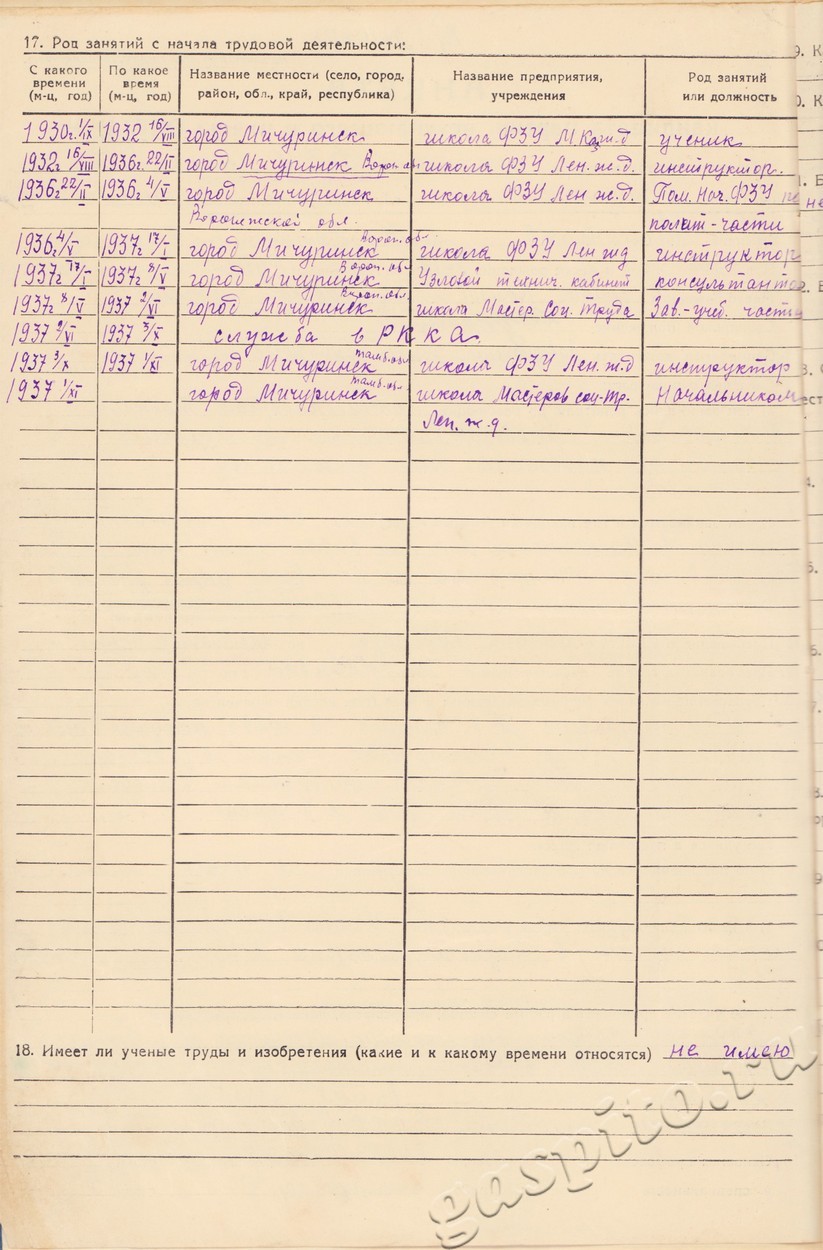 17. Род занятий с начала трудовой деятельности:
С какого времени (м-ц, год) По какое время (м-ц, год) Название местности (село, город, район, обл., край, республика) Название предприятия, учреждения Род занятий или должность
1930г. 1/IX 1932 16/VIII город Мичуринск школа ФЗУ М.Каз.ж.д ученик
1932г 16/VIII 1936г. 22/II город Мичуринск Ворон. обл школа ФЗУ Лен. ж.д. инструктор.
1936г 22/II 1936г. 4/V город Мичуринск школа ФЗУ Лен ж.д. Пом. Нач. ФЗУ по
Воронежской обл. полит-части
1936г 4/V 1937г 17/I город Мичуринск Ворон. обл школа ФЗУ Лен жд инструктор
1937г 17/I 1937г. 8/V город Мичуринск Ворон. обл Узловой технич. кабинет консультанто
1937г 8/V 1937 2/VI город Мичуринск Ворон. обл. школа Мастер. Соц. Труда Зав.-учеб. часть
1937 2/VI 1937 3/X служба в РККА.
1937 3/X 1937 1/XI город Мичуринск тамб. обл школа ФЗУ Лен. ж.д инструктор
1937 1/XI город Мичуринск тамб. обл школа Мастеров соц-тр. Начальником
Лен. ж.д.
18. Имеет ли ученые труды и изобретения (какие и к какому времени относятся) не имею
gaspito.ru